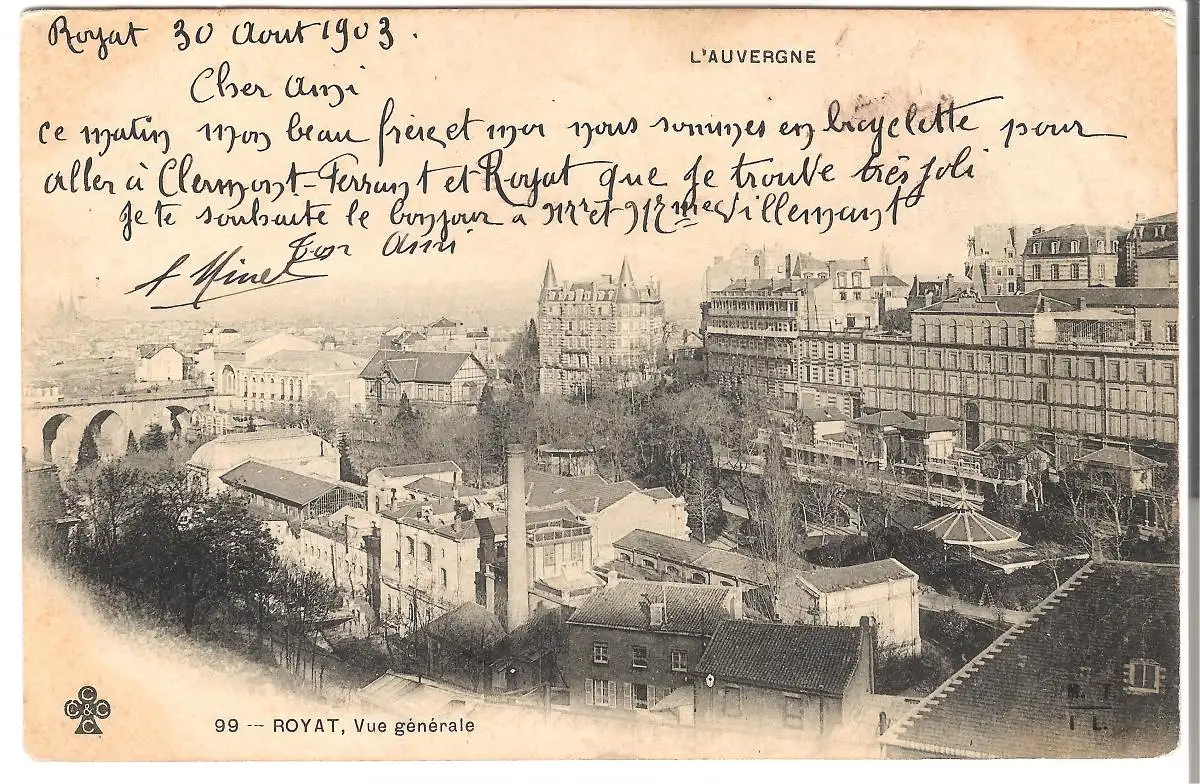 Royat 30 Aout 1903.
L'AUVERGNE
Cher Ami
ce matin mon beau frère et moi nous sommes en bicyclette pour
aller à Clermont-Ferrant et Royat que je trouve très joli
je te souhaite le bonjour a Mr et Mme Villemant
Ton Ami
C C&C
99 -- ROYAT, Vue générale
M. T
I L.